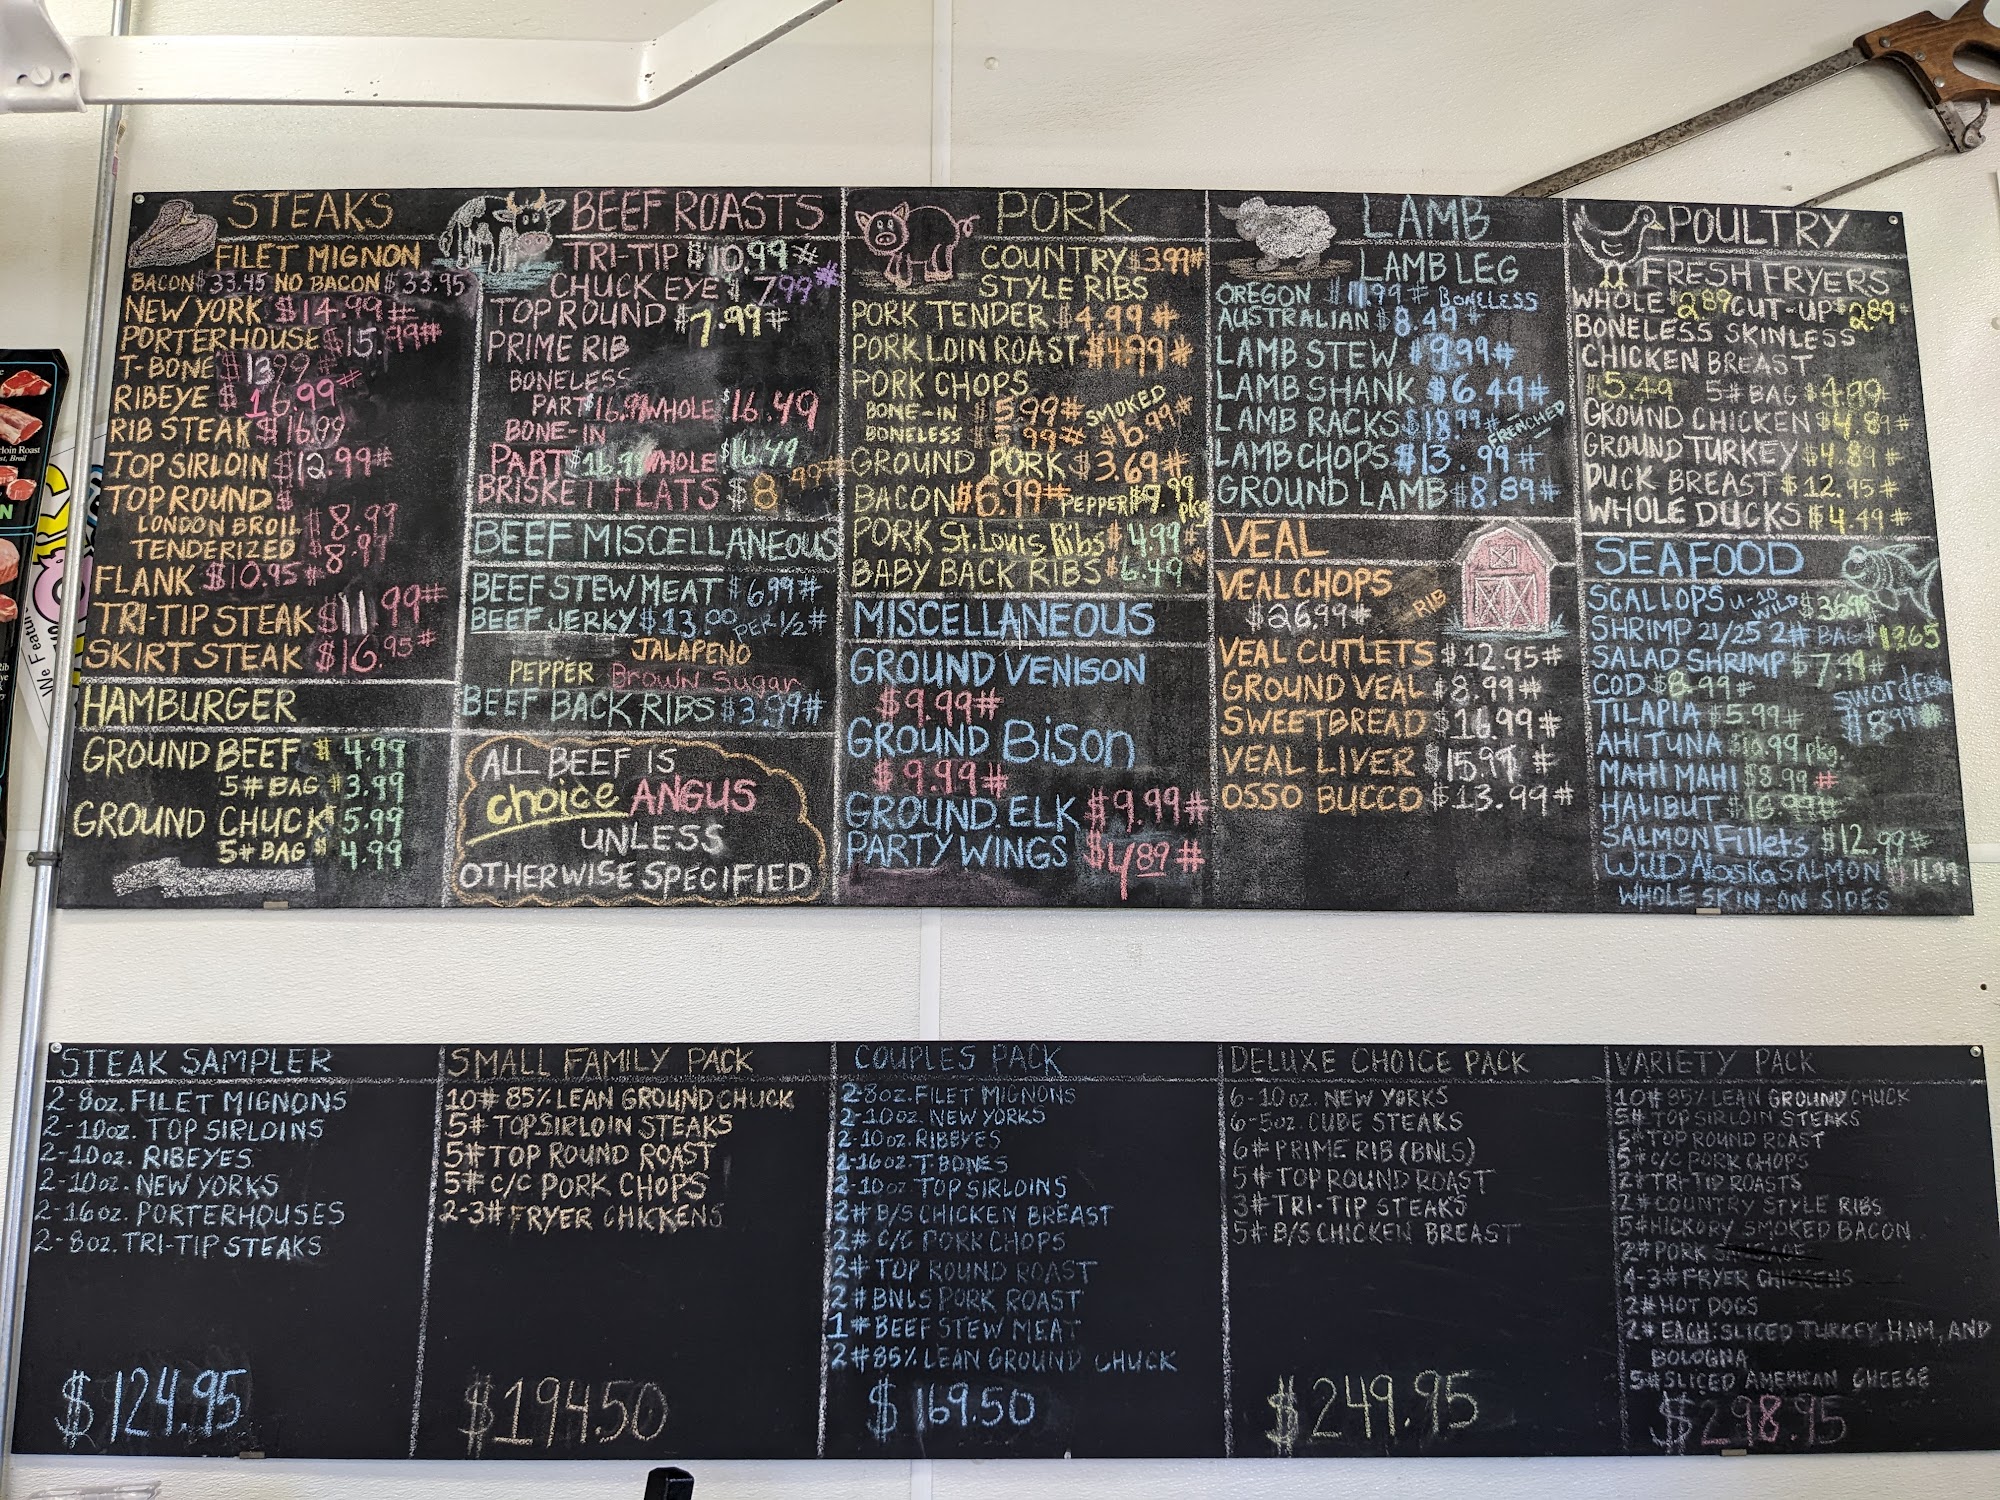 STEAKS
FILET MIGNON
BACON $33.45 NO BACON $33.95
NEW YORK $14.99#
PORTERHOUSE $15.99#
T-BONE $13.99#
RIBEYE $16.99#
RIB STEAK $16.99
TOP SIRLOIN $12.99#
TOP ROUND $
LONDON BROIL $8.99
TENDERIZED $8.97
FLANK $10.95#
TRI-TIP STEAK $11.99#
SKIRT STEAK $16.95#
HAMBURGER
GROUND BEEF $4.99
5# BAG $3.99
GROUND CHUCK $5.99
5# BAG $4.99
BEEF ROASTS
TRI-TIP $10.99#
CHUCK EYE $7.99#
TOP ROUND $7.99#
PRIME RIB
BONELESS
PART $16.99 WHOLE $16.49
BONE-IN
PART $16.99 WHOLE $16.49
BRISKET FLATS $8.99#
BEEF MISCELLANEOUS
BEEF STEW MEAT $6.99#
BEEF JERKY $13.00 PER 1/2#
JALAPENO
PEPPER Brown Sugar
BEEF BACK RIBS $3.99#
ALL BEEF IS
choice ANGUS
UNLESS
OTHERWISE SPECIFIED
PORK
COUNTRY $3.99#
STYLE RIBS
PORK TENDER $4.99#
PORK LOIN ROAST $4.99#
PORK CHOPS
BONE-IN $5.99# SMOKED
BONELESS $5.99# $6.99#
GROUND PORK $3.69#
BACON $6.99# PEPPER $7.99 pkg
PORK St. Louis Ribs $4.99#
BABY BACK RIBS $6.49#
MISCELLANEOUS
GROUND VENISON
$9.99#
GROUND Bison
$9.99#
GROUND ELK $9.99#
PARTY WINGS $4.89#
LAMB
LAMB LEG
OREGON $11.99# BONELESS
AUSTRALIAN $8.49#
LAMB STEW $9.99#
LAMB SHANK $6.49#
LAMB RACKS $18.99# FRENCHED
LAMB CHOPS $13.99#
GROUND LAMB $8.89#
VEAL
VEAL CHOPS
$26.99# RIB
VEAL CUTLETS $12.95#
GROUND VEAL $8.99#
SWEETBREAD $16.99#
VEAL LIVER $15.99#
OSSO BUCCO $13.99#
POULTRY
FRESH FRYERS
WHOLE $2.89 CUT-UP $2.89#
BONELESS SKINLESS
CHICKEN BREAST
$5.49 5# BAG $4.99
GROUND CHICKEN $4.89#
GROUND TURKEY $4.89#
DUCK BREAST $12.95#
WHOLE DUCKS $4.49#
SEAFOOD
SCALLOPS U-10 WILD $36.95
SHRIMP 21/25 2# BAG $19.65
SALAD SHRIMP $7.99#
COD $8.99#
Swordfish
TILAPIA $5.99# $8.99#
AHI TUNA $10.99 pkg.
MAHI MAHI $8.99#
HALIBUT $16.99#
SALMON Fillets $12.99#
Wild Alaska SALMON $11.99
WHOLE SKIN-ON SIDES
STEAK SAMPLER
2-8oz. FILET MIGNONS
2-10oz. TOP SIRLOINS
2-10oz. RIBEYES
2-10oz. NEW YORKS
2-16oz. PORTERHOUSES
2-8oz. TRI-TIP STEAKS
$124.95
SMALL FAMILY PACK
10# 85% LEAN GROUND CHUCK
5# TOP SIRLOIN STEAKS
5# TOP ROUND ROAST
5# C/C PORK CHOPS
2-3# FRYER CHICKENS
$194.50
COUPLES PACK
2-8oz. FILET MIGNONS
2-10oz. NEW YORKS
2-10oz. RIBEYES
2-16oz. T-BONES
2-10oz. TOP SIRLOINS
2# B/S CHICKEN BREAST
2# C/C PORK CHOPS
2# TOP ROUND ROAST
2# BNLS PORK ROAST
1# BEEF STEW MEAT
2# 85% LEAN GROUND CHUCK
$169.50
DELUXE CHOICE PACK
6-10oz. NEW YORKS
6-5oz. CUBE STEAKS
6# PRIME RIB (BNLS)
5# TOP ROUND ROAST
3# TRI-TIP STEAKS
5# B/S CHICKEN BREAST
$249.95
VARIETY PACK
10# 85% LEAN GROUND CHUCK
5# TOP SIRLOIN STEAKS
5# TOP ROUND ROAST
5# C/C PORK CHOPS
2# TRI-TIP ROASTS
2# COUNTRY STYLE RIBS
5# HICKORY SMOKED BACON
2# PORK SAUSAGE
4-3# FRYER CHICKENS
2# HOT DOGS
2# EACH: SLICED TURKEY, HAM, AND
BOLOGNA
5# SLICED AMERICAN CHEESE
$298.95
We Featur